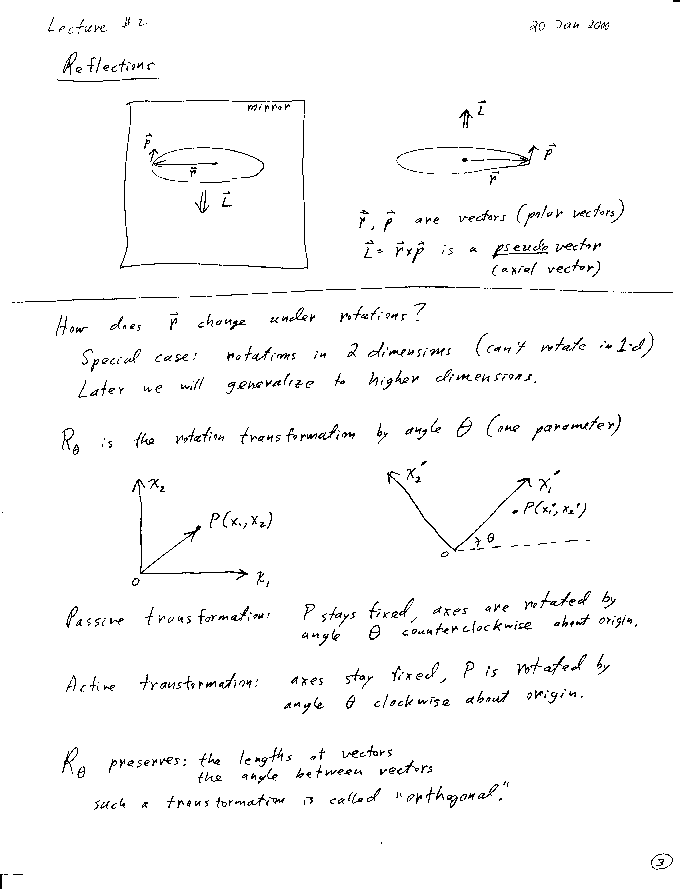 Lecture #2
20 Jan 2000
Reflections
mirror
p⃗
r⃗
L⃗
L⃗
p⃗
r⃗
r⃗, p⃗ are vectors (polar vectors)
L⃗ = r⃗×p⃗ is a pseudovector
(axial vector)
How does r⃗ change under rotations?
Special case: rotations in 2 dimensions (can't rotate in 1-d)
Later we will generalize to higher dimensions.
R_θ is the rotation transformation by angle θ (one parameter)
x₂
P(x₁, x₂)
0
x₁
x₂'
x₁'
P(x₁', x₂')
θ
0
Passive transformation: P stays fixed, axes are rotated by
angle θ counterclockwise about origin.
Active transformation: axes stay fixed, P is rotated by
angle θ clockwise about origin.
R_θ preserves: the lengths of vectors
the angle between vectors
such a transformation is called "orthogonal."
3